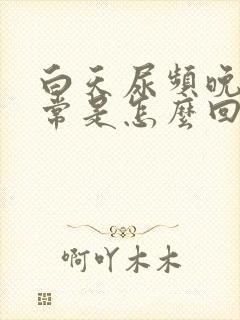 白天尿頻晚
常是怎麼回
啊吖木木